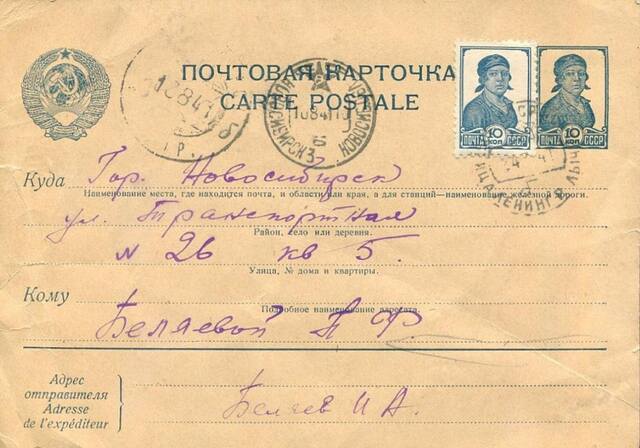 ПОЧТОВАЯ КАРТОЧКА
CARTE POSTALE
10 КОП ПОЧТА СССР
10 КОП ПОЧТА СССР
НОВОСИБИРСК
Куда Гор. Новосибирск
Наименование места, где находится почта, и области или края, а для станций—наименование железной дороги.
ул. Транспортная
Район, село или деревня.
N 26 кв 5.
Улица, № дома и квартиры.
Кому
Подробное наименование адресата.
Беляевой П Ф.
Адрес
отправителя
Adresse
de l'expéditeur
Беляев И А.